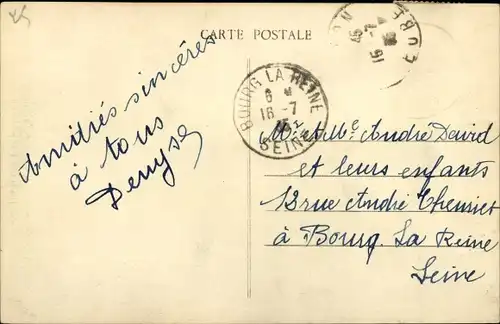 CARTE POSTALE
Amitiés sincères
à tous
Denyse
BOURG LA REINE
6
16 -7
35
SEINE
EURE
16 -7
35
M. et Me. André David
et leurs enfants
12 rue André Theuriet
à Bourg. La Reine
Seine